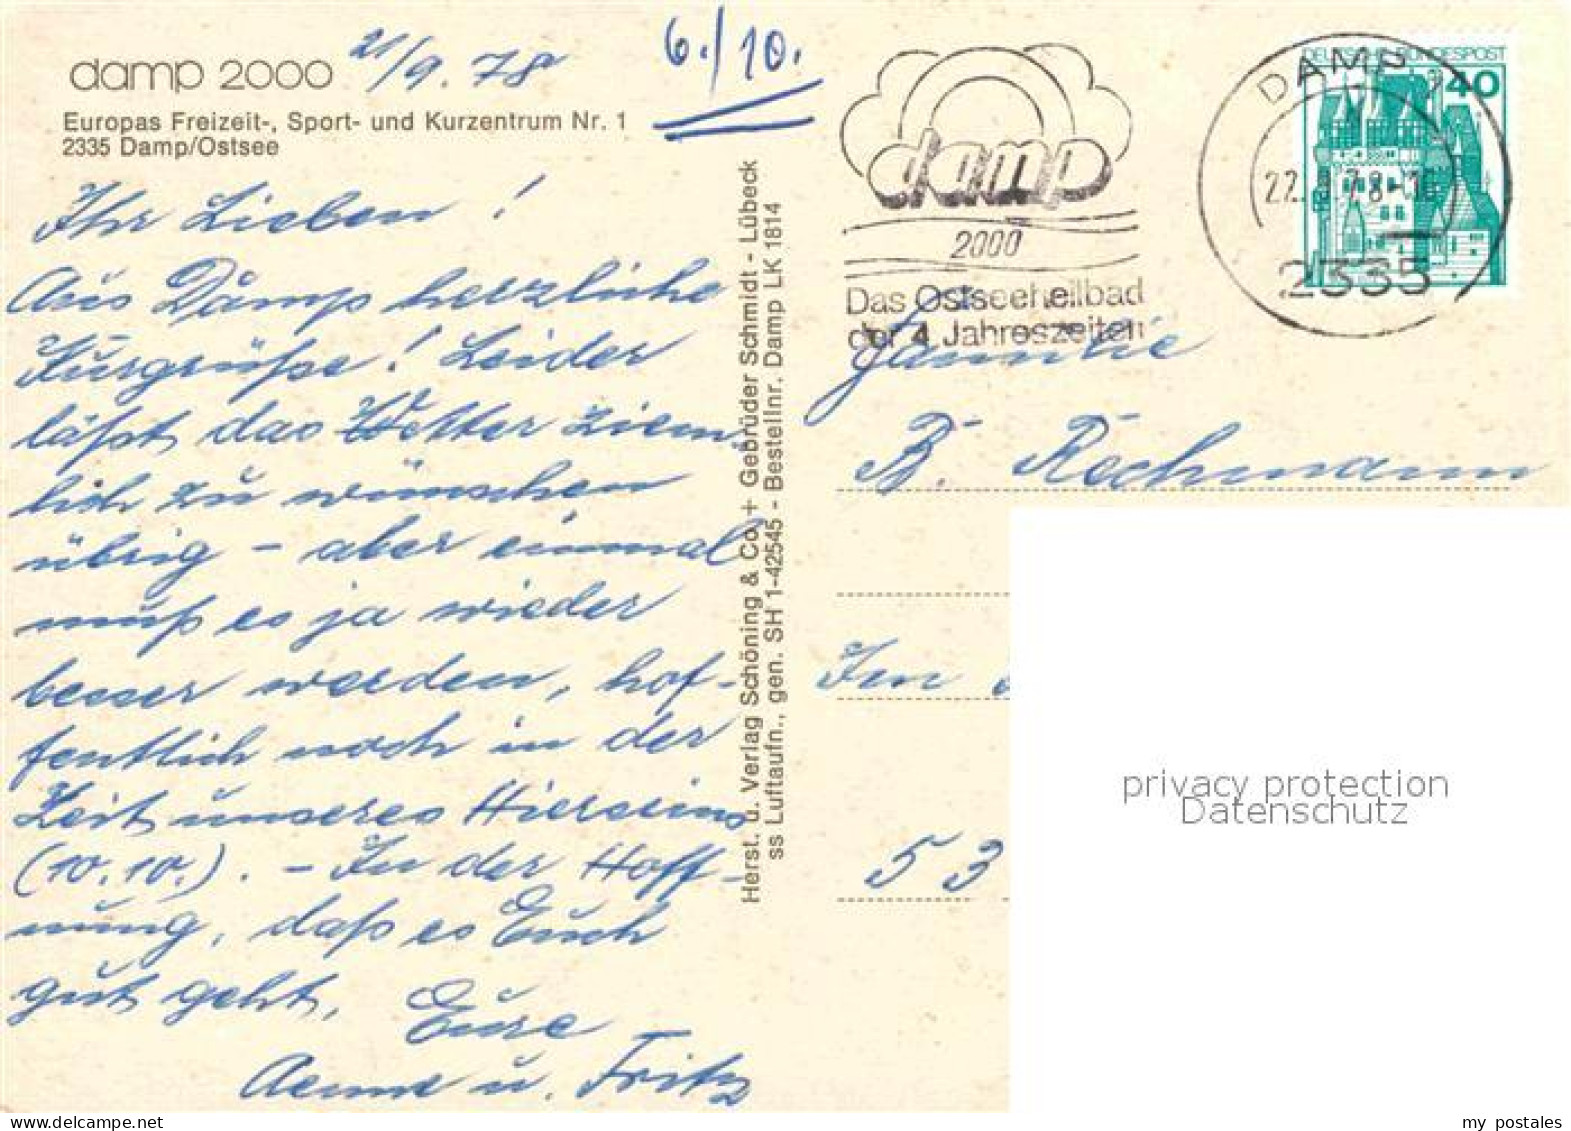 damp 2000 21/9. 78
6./10.
Europas Freizeit-, Sport- und Kurzentrum Nr. 1
2335 Damp/Ostsee
Ihr Lieben !
Aus Damp herzliche
Kurgrüße! Leider
läßt das Wetter ziem-
lich zu wünschen
übrig - aber einmal
muß es ja wieder
besser werden, hof-
fentlich noch in der
Zeit unseres Hierseins
(10.10.). - In der Hoff-
nung, daß es Euch
gut geht,
Eure
Aenne u. Fritz
Herst. u. Verlag Schöning & Co + Gebrüder Schmidt - Lübeck
ss Luftaufn., gen. SH 1-42545 - Bestellnr. Damp LK 1814
damp
2000
Das Ostseeheilbad
der 4 Jahreszeiten
DEUTSCHE BUNDESPOST
40
DAMP
22. 9.78
2335
Familie
B. Rechmann
In
53
privacy protection
Datenschutz
my postales